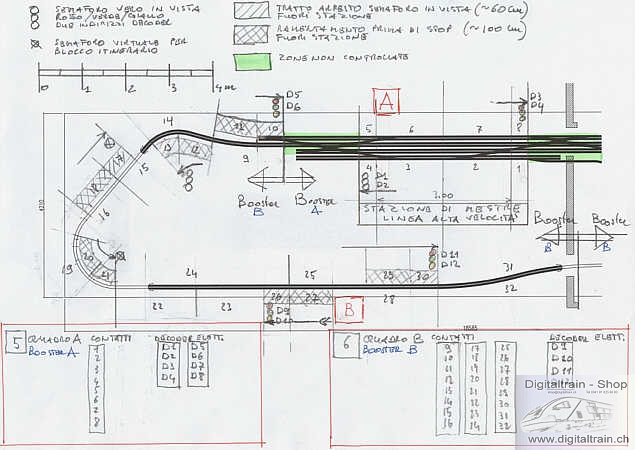 SEMAFORO VERO IN VISTA
ROSSO/VERDE/GIALLO
DUE INDIRIZZI DECODER
SEMAFORO VIRTUALE PER
BLOCCO ITINERARIO
TRATTO ARRESTO SEMAFORO IN VISTA (~60 cm)
FUORI STAZIONE
RALLENTAMENTO PRIMA DI STOP (~100 cm)
FUORI STAZIONE
ZONE NON CONTROLLATE
0 1 2 3 4 m
D5
D6
A
D3
D4
14
11
10
5
6
7
8
13
12
15
9
4
3
2
1
17
18
16
D1
D2
Booster
B
Booster
A
3.00
STAZIONE DI MESTRE
LINEA ALTA VELOCITA'
Booster
B
Booster
B
19
20
21
D11
D12
24
25
29
30
31
32
22
23
26
27
28
D9
D10
B
5
QUADRO A
BOOSTER A
CONTATTI
1
2
3
4
5
6
7
8
DECODER ELETT.
D1
D2
D3
D4
D5
D6
D7
D8
6
QUADRO B
BOOSTER B
CONTATTI
9
10
11
12
13
14
15
16
17
18
19
20
21
22
23
24
25
26
27
28
29
30
31
32
DECODER ELETT.
D9
D10
D11
Digitaltrain - Shop
www.digitaltrain.ch